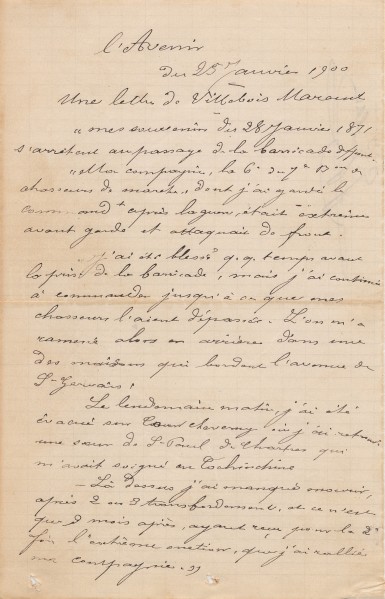 l'Avenir
du 25 Janvier 1900
Une lettre de Villebois Mareuil
"mes souvenirs du 28 Janvier 1871
s'arrêtent au passage de la barricade
"Ma compagnie, la 6e du 7e Bon de
chasseurs de marche, dont j'ai gardé le
command.t après la guerre, était extrême
avant garde et attaquait de front.
j'ai été blessé q.q temps avant
la prise de la barricade, mais j'ai continué
à commander jusqu'à ce que mes
chasseurs l'aient dépassée. L'on m'a
ramené alors en arrière dans une
des maisons qui bordent l'avenue de
St Gervais!
Le lendemain matin, j'ai été
évacué sur Cour cheverny où j'ai retrouvé
une sœur de St Paul de Chartres qui
m'avait soigné en Cochinchine
- Là dessus j'ai manqué mourir,
après 2 ou 3 transbordements, et ce n'est
que mois après, ayant reçu pour la 2e
fois l'extrême onction, que j'ai rallié
ma compagnie."